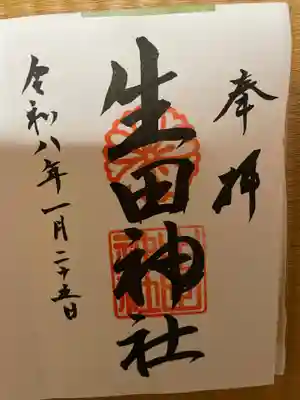 奉拝
生田神社
令和八年一月二十五日